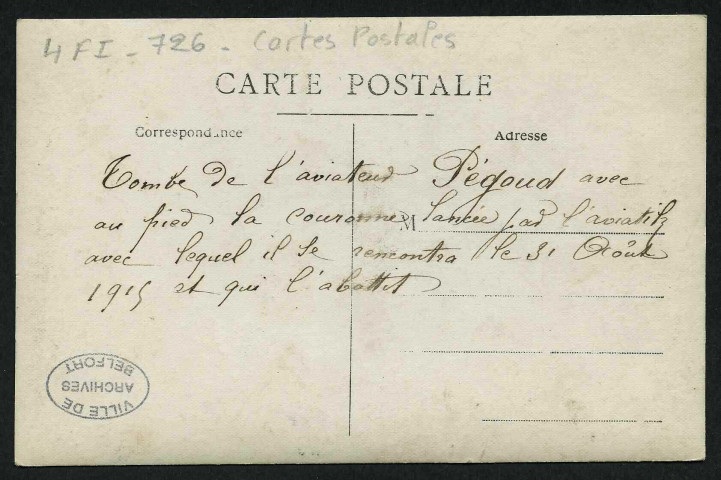 4 FI - 726 - Cartes Postales
CARTE POSTALE
Correspondance
Adresse
Tombe de l'aviateur Pégoud avec
au pied la couronne lancée par l'aviatik
M
avec lequel il se rencontra le 31 Août
1915 et qui l'abattit
VILLE DE
ARCHIVES
BELFORT